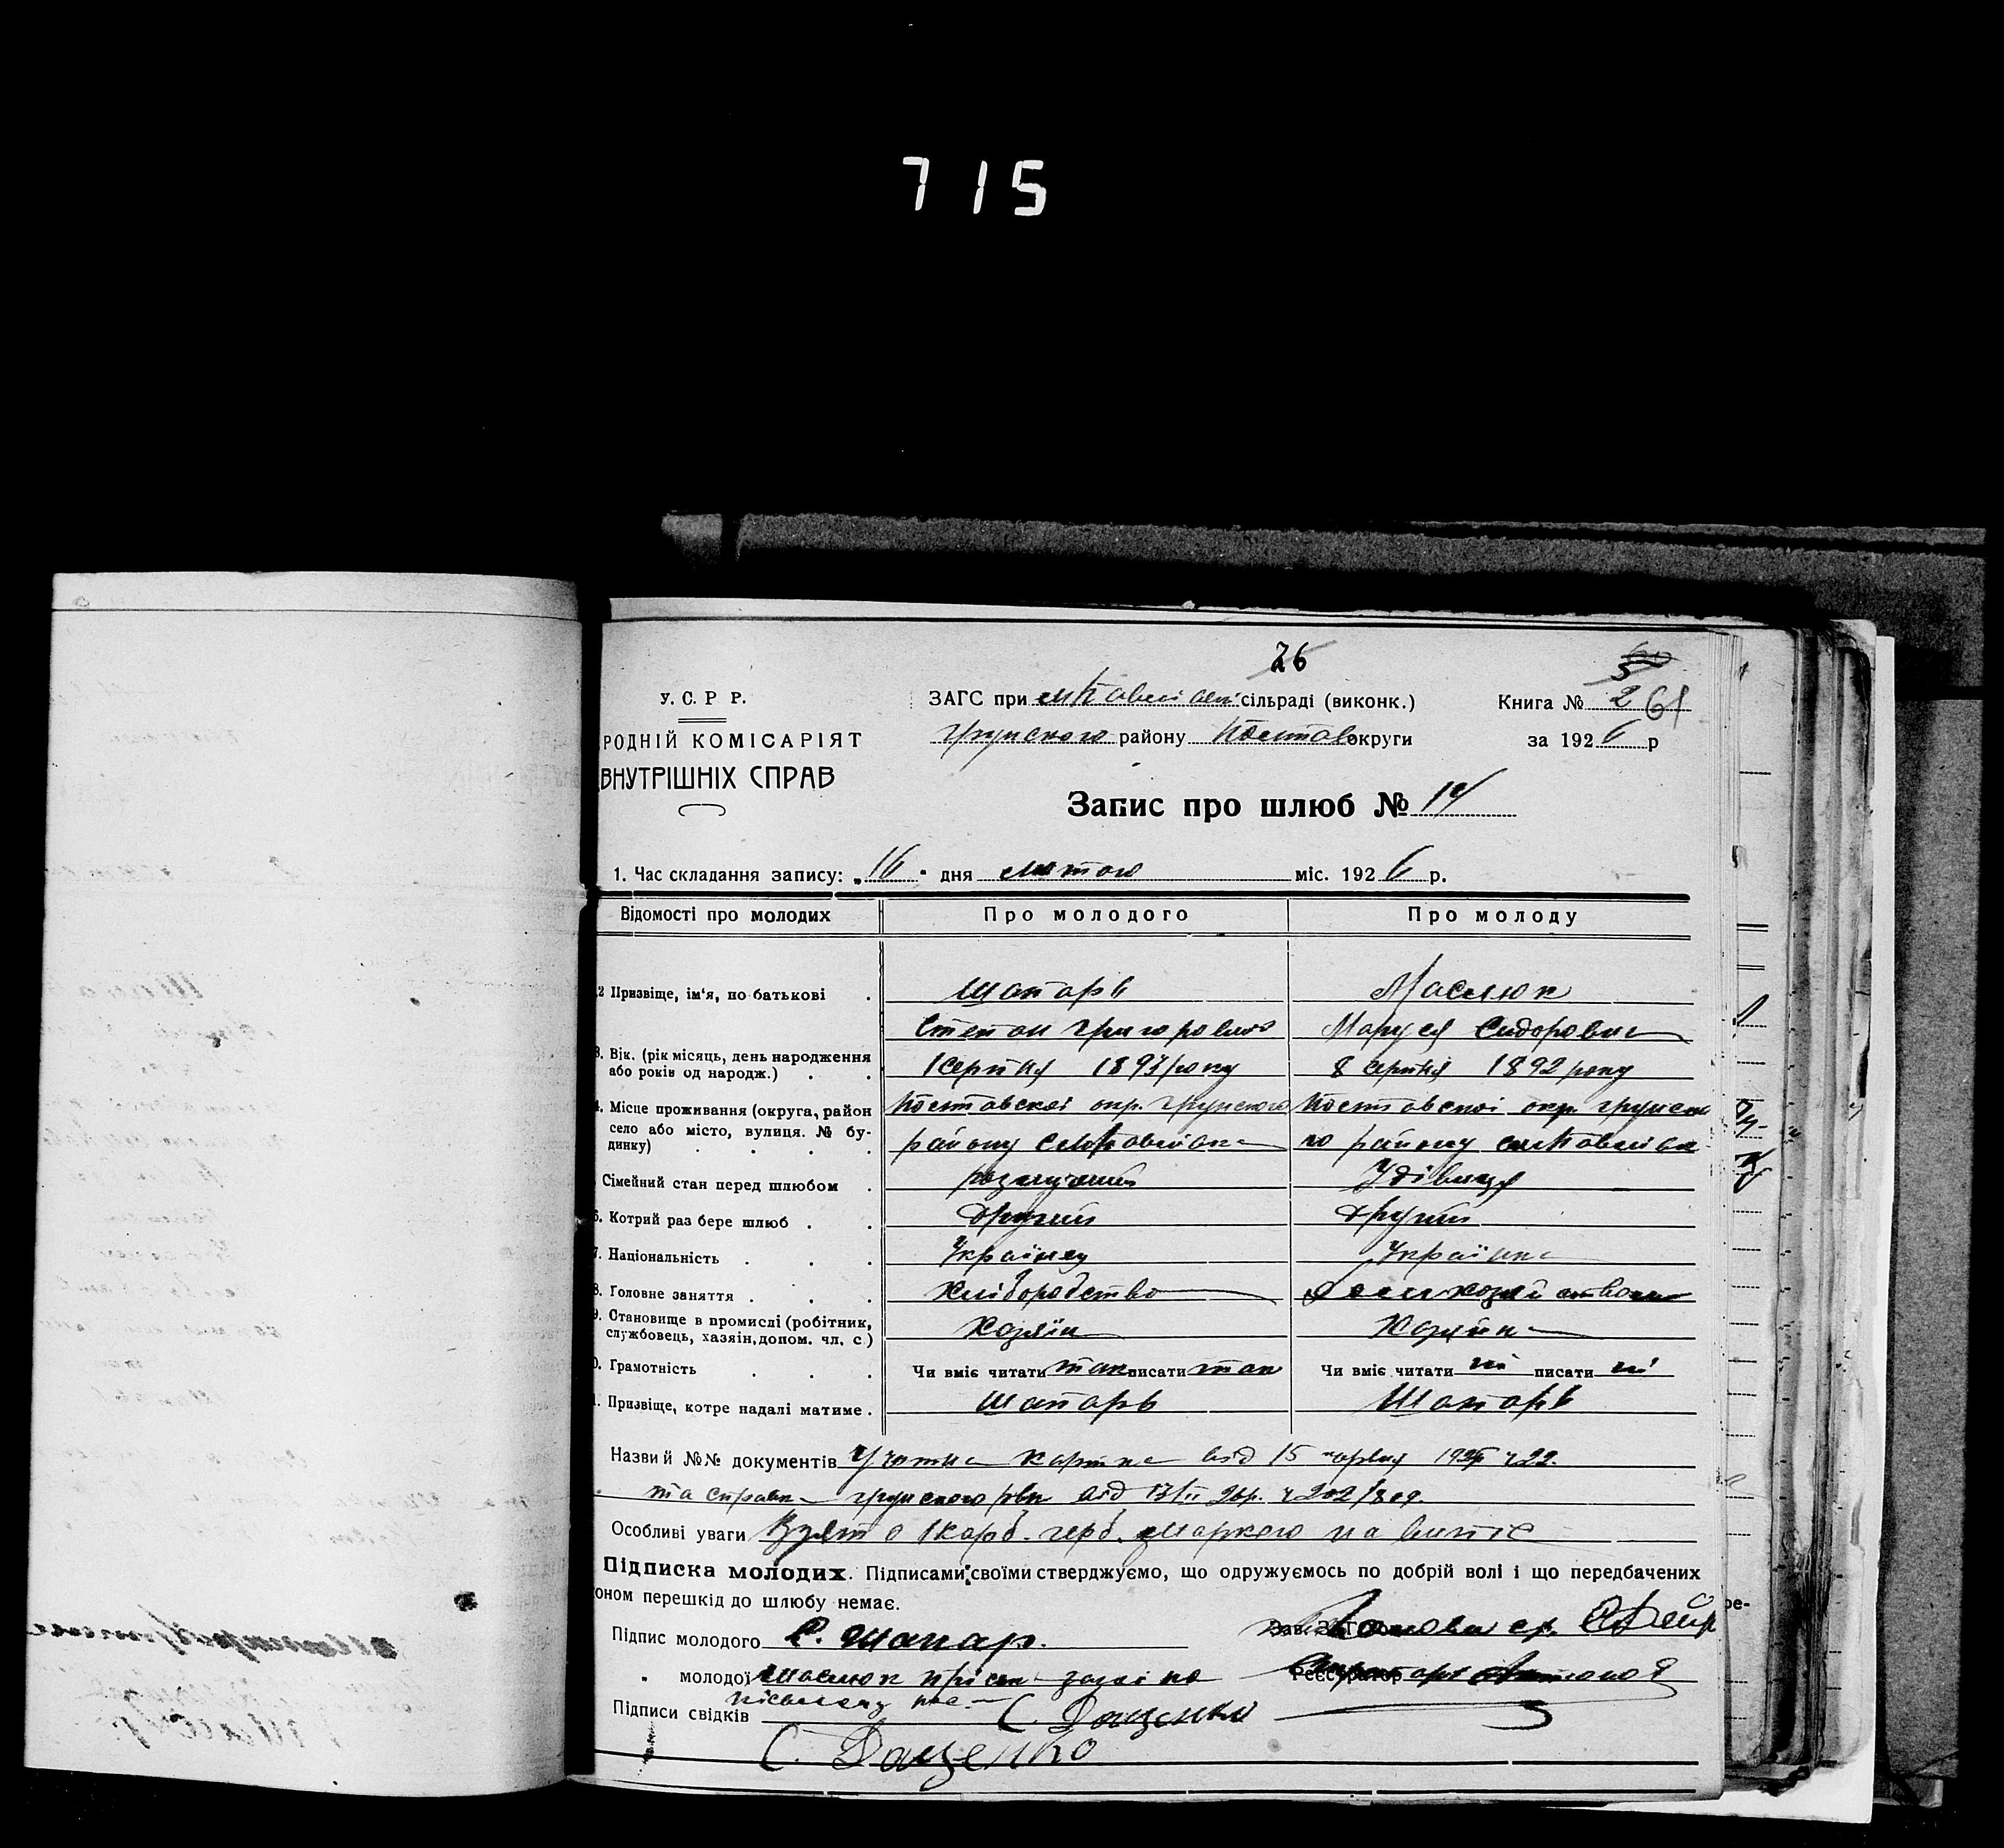 715
26
У. С. Р. Р.
ЗАГС при сільраді (виконк.)
Книга № 2 61
РОДНІЙ КОМІСАРІЯТ
Грунського району Полтав округи
за 1926 р
ВНУТРІШНІХ СПРАВ
Запис про шлюб № 14
1. Час складання запису: „16" дня лютого міс. 1926 р.
Відомості про молодих Про молодого Про молоду
2 Призвіще, ім'я, по батькові . Шапарь Маслюк
Степан Григорович Маруся Сидоровна
3. Вік. (рік місяць, день народження
або років од народж.) . . 1 серпня 1893 року 8 серпня 1892 року
4. Місце проживання (округа, район
село або місто, вулиця. № бу-
динку) . . . . Полтавскоі окр. Грунского Полтавскоі окр. Грунско
району го району
Сімейний стан перед шлюбом . розлучений Удівиця
6. Котрий раз бере шлюб . . Другий Другий
7. Національність . . . Українец Українка
8. Головне заняття . . . Хліборобство
9. Становище в промислі (робітник,
службовець, хазяін, допом. чл. с.) Хозяїн Хозяйка
0. Грамотність . . . Чи вміє читати так писати так Чи вміє читати ні писати ні
1. Призвіще, котре надалі матиме . Шапарь Шапарь
Назви й №№ документів Учотна картка від 15 червня
та справка Грунского рвк від 13/II 26р. ч 202/809.
Особливі уваги Взято 1 карб. герб. маркою на
Підписка молодих. Підписами своїми стверджуємо, що одружуємось по добрій волі і що передбачених
оном перешкід до шлюбу немає.
Підпис молодого С. Шапар. Зав. ЗАГС'ом Голова ср.
„ молодої Маслюк Реєстратор
Підписи свідків С. Даценко
С. Даценко